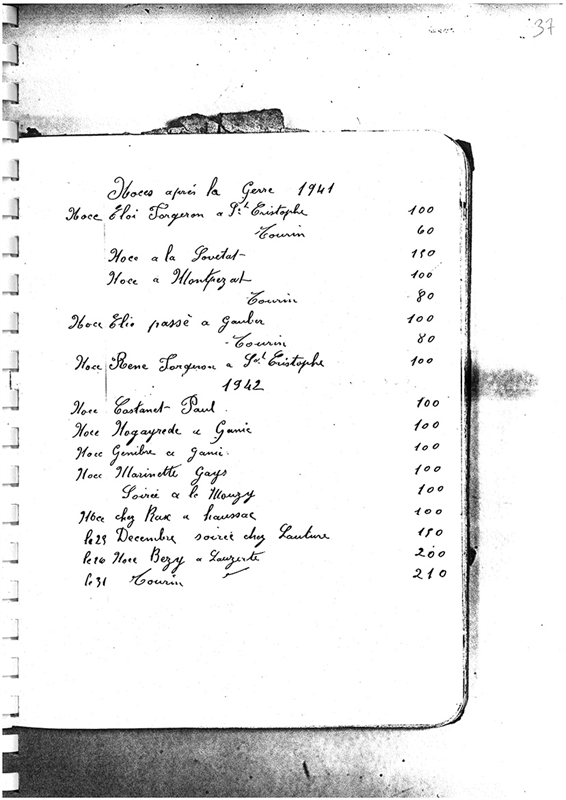 37
Noces après la Gerre 1941
Noce Eloi Forgeron a St Cristophe 100
Tourin 60
Noce a la Sovetat 150
Noce a Montpezat 100
Tourin 80
Noce Elio passè a Gauber 100
Tourin 80
Noce Rene Forgeron a St Cristophe 100
1942
Noce Castanet Paul 100
Noce Nogayrede a Ganic 100
Noce Genibre a ganic 100
Noce Marinette Gays 100
Soirée a le Mouzy 100
Noce chez Rax a haussac 100
le 25 Decembre soirée chez Lauture 150
le 26 Noce Bezy a Lauzerte 200
le 31 Tourin 210